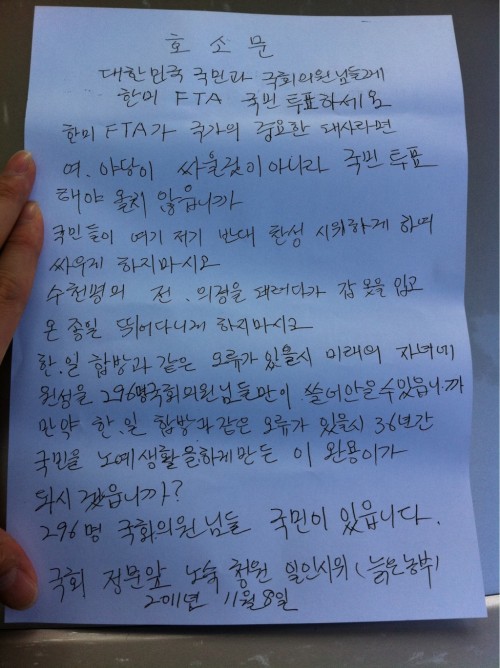 호소문
대한민국 국민과 국회의원님들게
한미 FTA 국민투표하세요
한미 FTA가 국가의 중요한 대사라면
여.야당이 싸울것이 아니라 국민투표
해야 옳치 않읍니까
국민들이 여기 저기 반대 찬성 시위하게 하며
싸우게 하지마시오
수천명의 전.의경을 데려다가 갑옷을 입고
온종일 뛰어다니게 하지마시고
한.일 합방과 같은 오류가 있을시 미래의 자녀네
원성을 296명국회의원님들만이 쓸어안을수있읍니까
만약 한.일 합방과같은 오류가 있을시 36년간
국민을 노예생활을하게만든 이완용이가
돠시 겠읍니까?
296명 국회의원님들 국민이 있읍니다.
국회 정문앞 노숙 청원 일인시위 (늙은농부)
2011년 11월 8일